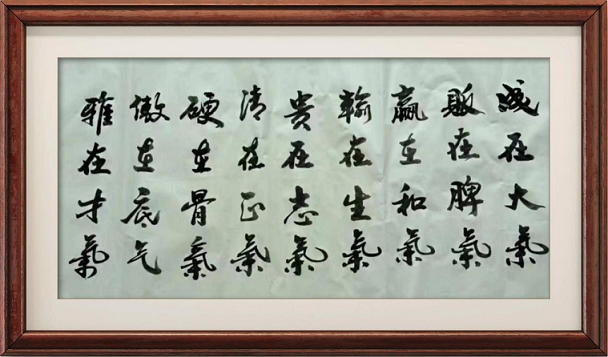 成在大氣
敗在脾氣
贏在和氣
輸在生氣
貴在志氣
清在正氣
硬在骨氣
傲在底气
雅在才氣